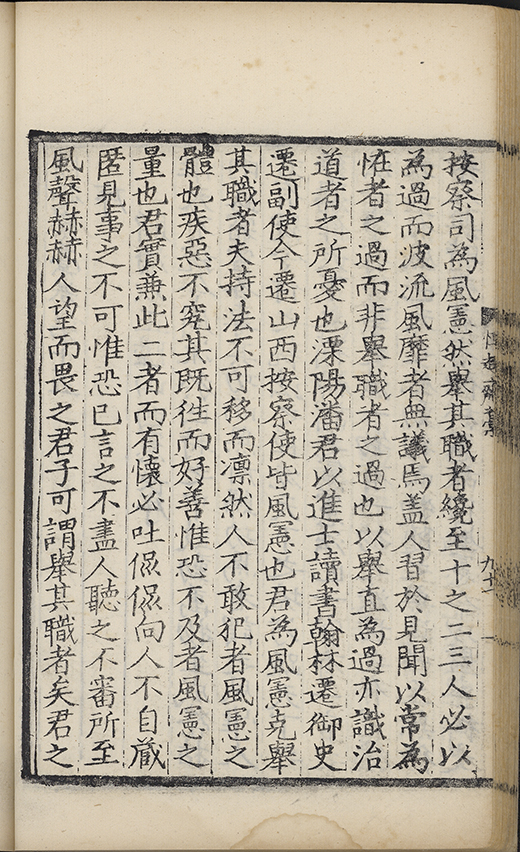 按察司為風憲然舉其職者纔至十之二三人必以
為過而波流風靡者無議焉盖人習於見聞以常為
恠者之過而非舉職者之過也以舉直為過亦識治
道者之所憂也溧陽潘君以進士讀書翰林遷御史
遷副使今遷山西按察使皆風憲也君為風憲克舉
其職者夫持法不可移而凛然人不敢犯者風憲之
體也疾惡不究其既徃而好善惟恐不及者風憲之
量也君實兼此二者而有懷必吐偘偘向人不自蔵
匿見事之不可惟恐已言之不盡人聽之不審所至
風聲赫赫人望而畏之君子可謂舉其職者矣君之
齋藁